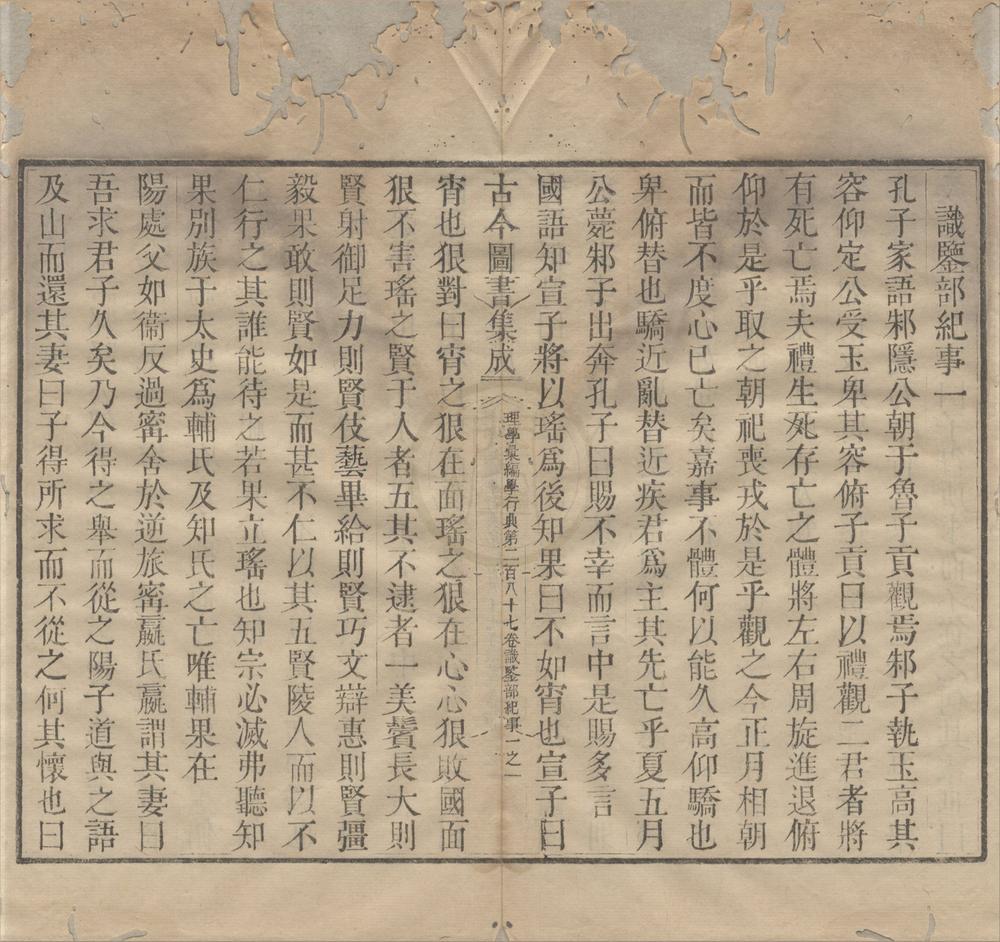 識鑒部紀事一
孔子家語邾隱公朝于魯子貢觀焉邾子執玉高其
容仰定公受玉卑其容俯子貢曰以禮觀二君者將
有死亡焉夫禮生死存亡之體將左右周旋進退俯
仰於是乎取之朝祀喪戎於是乎觀之今正月相朝
而皆不度心已亡矣嘉事不體何以能久高仰驕也
卑俯替也驕近亂替近疾君爲主其先亡乎夏五月
公薨邾子出奔孔子曰賜不幸而言中是賜多言
國語知宣子將以瑤爲後知果曰不如宵也宣子曰
古今圖書集成
理學彙編學行典第二百八十七卷識鑒部紀事一之一
宵也狠對曰宵之狠在面瑤之狠在心心狠敗國面
狠不害瑤之賢于人者五其不逮者一美鬢長大則
賢射御足力則賢伎藝畢給則賢巧文辯惠則賢彊
毅果敢則賢如是而甚不仁以其五賢陵人而以不
仁行之其誰能待之若果立瑤也知宗必滅弗聽知
果別族于太史爲輔氏及知氏之亡唯輔果在
陽處父如衞反過甯舍於逆旅甯嬴氏嬴謂其妻曰
吾求君子久矣乃今得之舉而從之陽子道與之語
及山而還其妻曰子得所求而不從之何其懷也曰